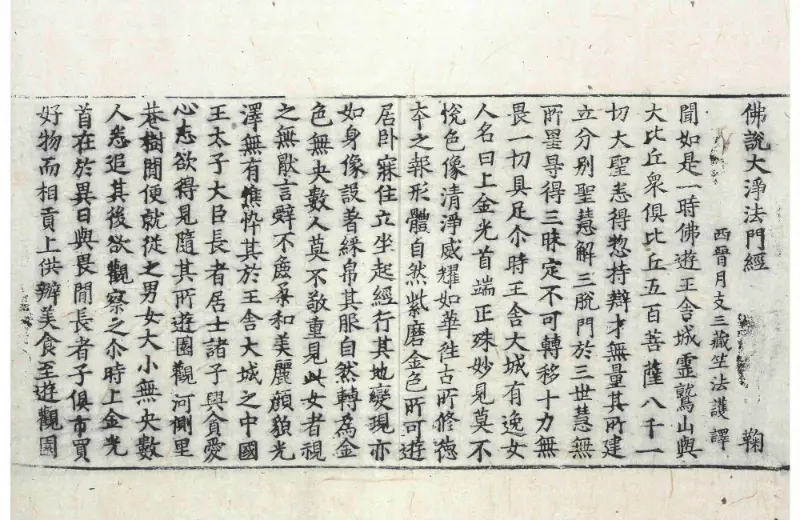 佛說大淨法門經 鞠
西晉月支三藏竺法護譯
聞如是一時佛遊王舍城靈鷲山與
大比丘衆俱比丘五百菩薩八千一
切大聖悉得惣持辯才無量其所建
立分別聖慧解三脫門於三世慧無
所罣㝵得三昧定不可轉移十力無
畏一切具足尒時王舍大城有逸女
人名曰上金光首端正殊妙見莫不
悅色像清淨威耀如華徃古所修德
夲之報形體自然紫磨金色所可遊
居卧寐住立坐起經行其地變現亦
如身像設著綵帛其服自然轉為金
色無央數人莫不敬重見此女者視
之無猒言辭不麁柔和美麗顏貌光
澤無有憔悴其於王舍大城之中國
王太子大臣長者居士諸子興貪愛
心悉欲得見隨其所遊園觀河側里
巷樹間便就從之男女大小無央數
人悉追其後欲觀察之尒時上金光
首在於異日與畏間長者子俱市買
好物而相貢上供辦美食至遊觀園